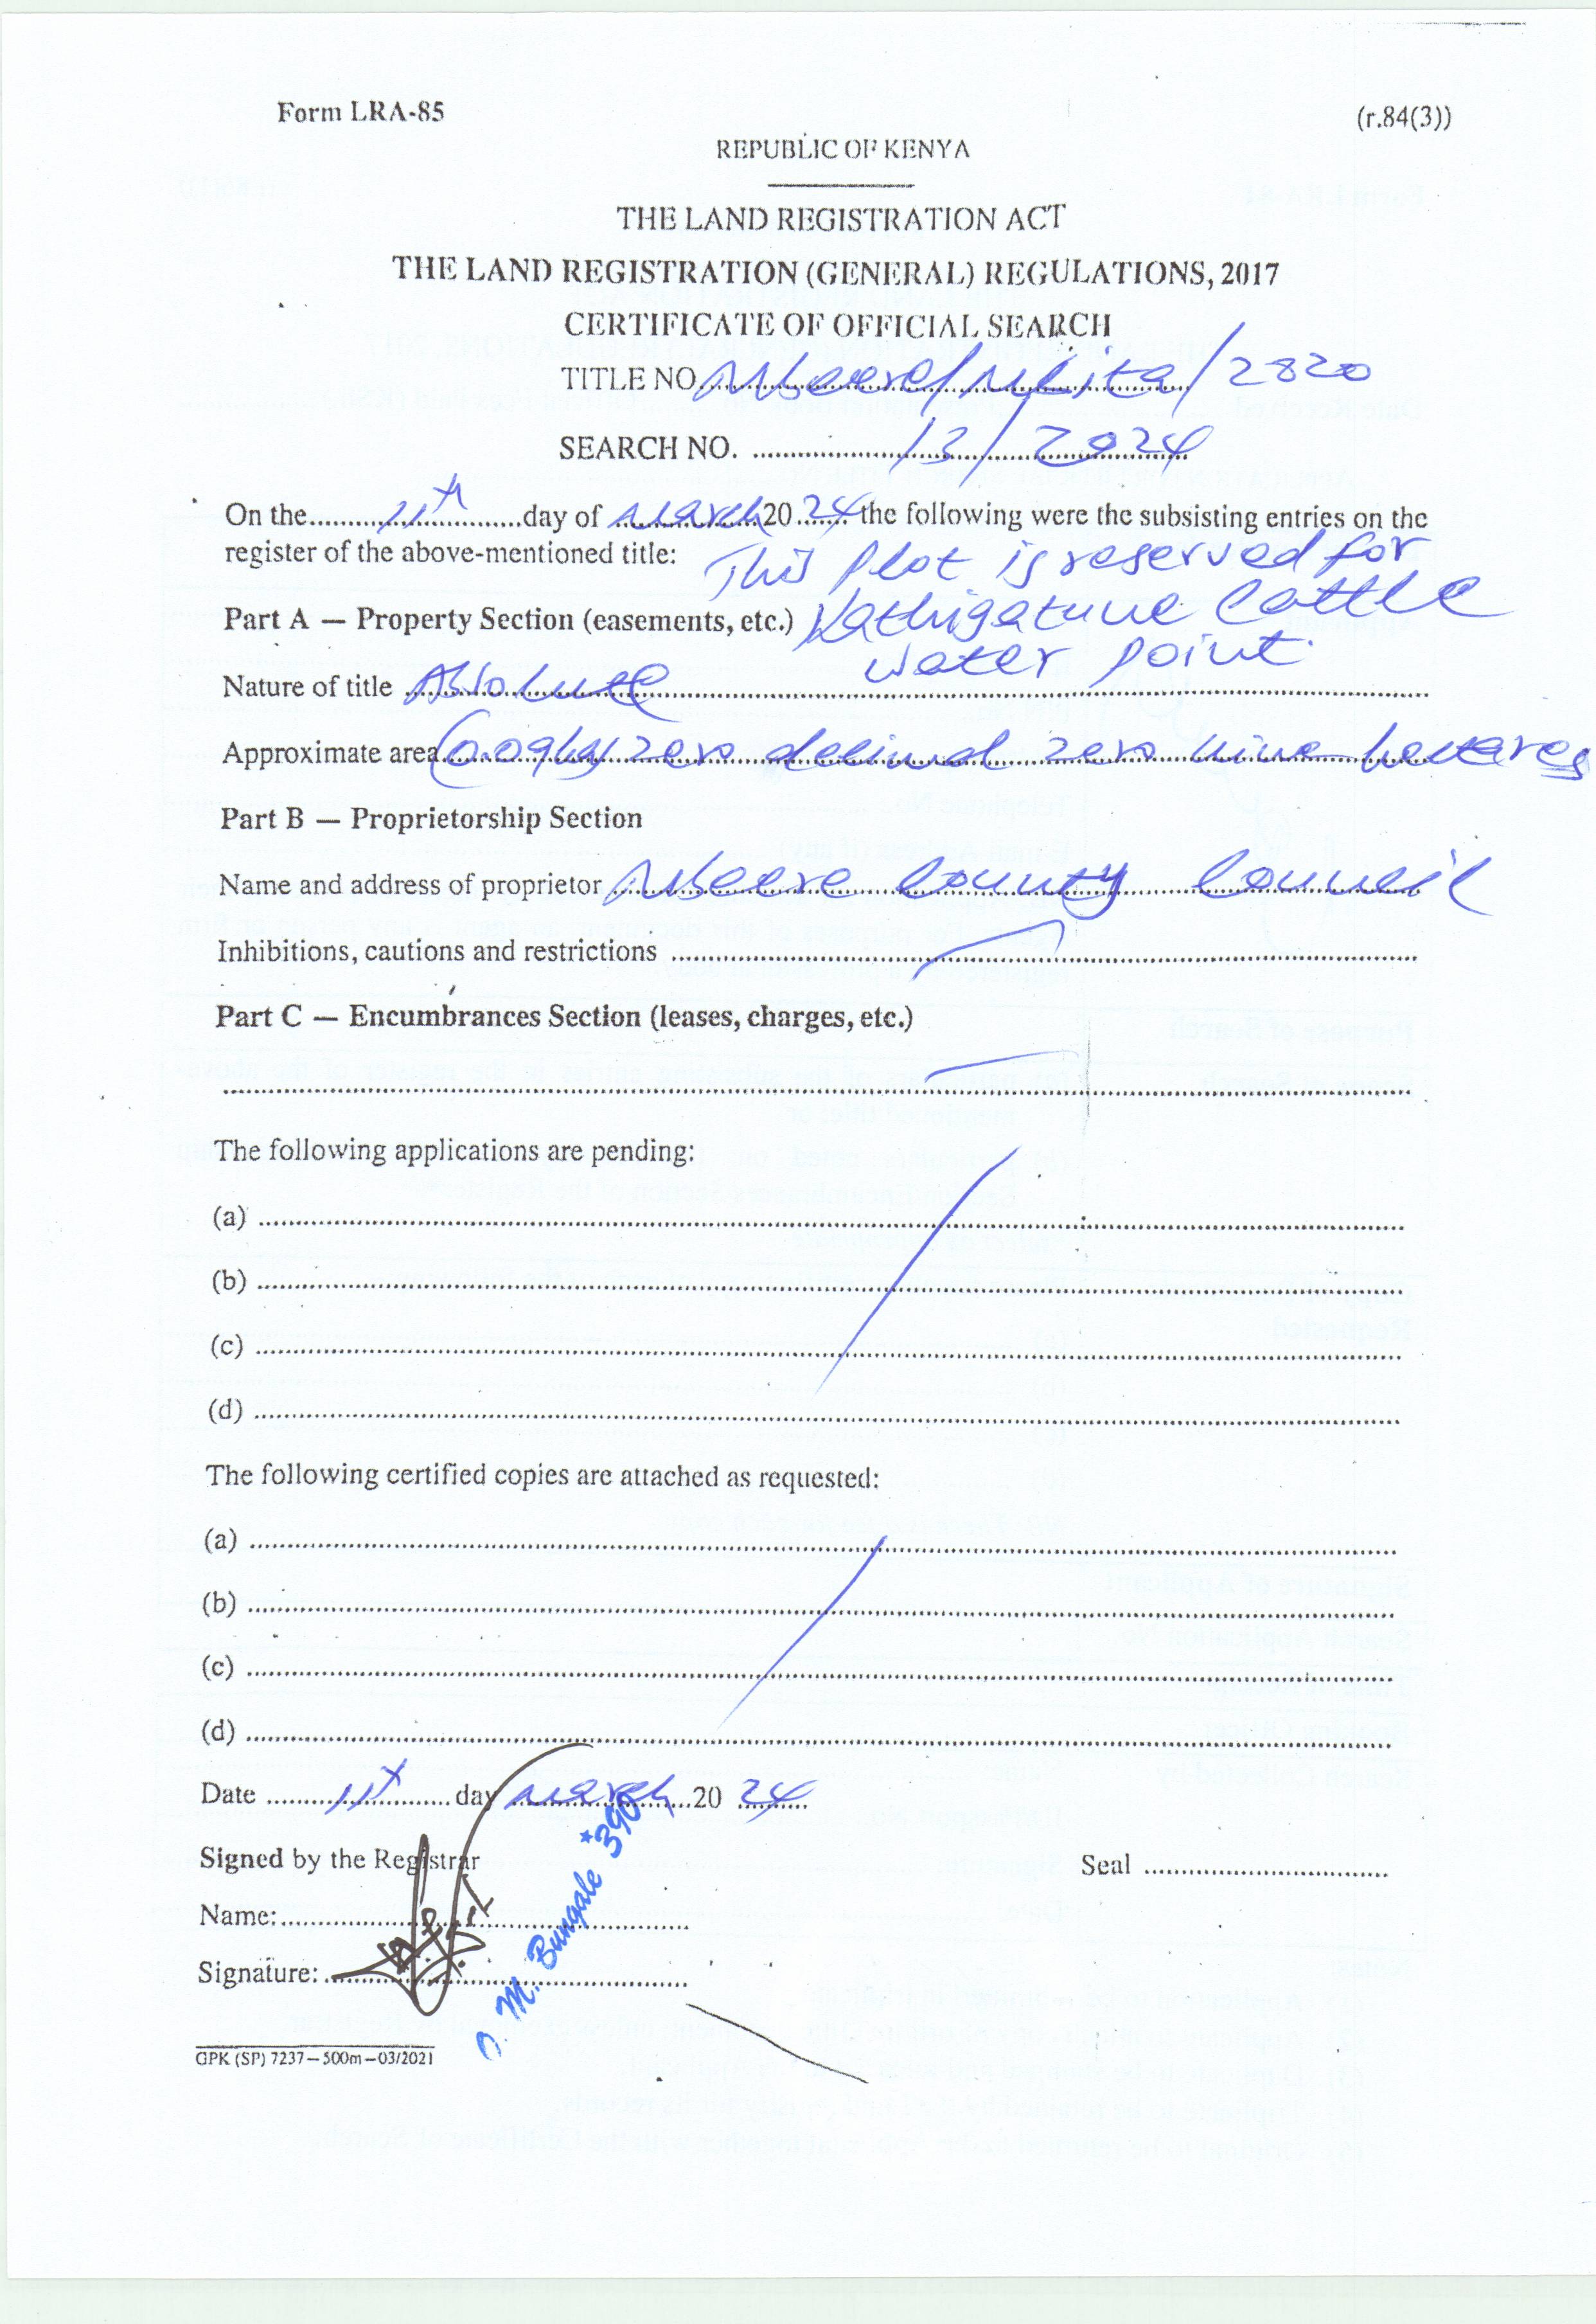 Form LRA-85 (r.84(3))
REPUBLIC OF KENYA
THE LAND REGISTRATION ACT
THE LAND REGISTRATION (GENERAL) REGULATIONS, 2017
CERTIFICATE OF OFFICIAL SEARCH
TITLE NO. Mbeere/Mbita/2820
SEARCH NO. 13/2024
On the 11th day of March 2024 the following were the subsisting entries on the
register of the above-mentioned title: This Plot is reserved for
Part A — Property Section (easements, etc.) Kathigature Cattle
water point.
Nature of title Absolute
Approximate area (0.09ha) zero decimal zero nine hectares
Part B — Proprietorship Section
Name and address of proprietor Mbeere County Council
Inhibitions, cautions and restrictions
Part C — Encumbrances Section (leases, charges, etc.)
The following applications are pending:
(a)
(b)
(c)
(d)
The following certified copies are attached as requested:
(a)
(b)
(c)
(d)
Date 11th day March 2024
Signed by the Registrar Seal
Name:
Signature:
J. M. Bungale *390
GPK (SP) 7237—500m—03/2021